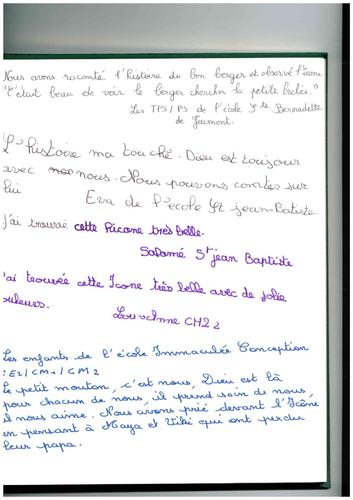 Nous avons raconté l'histoire du bon berger et observé l'icone
"C'était beau de voir le berger chercher la petite brebis."
Les TPS/PS de l'école Ste Bernadette
de Jarmont.
L'histoire ma touché. Dieu est toujour
avec nous. Nous pouvons contés sur
lui
Eva de l'école St jean-Batiste.
j'ai trouvié cette Picone très belle.
Salomé St jean Baptiste
'ai trouvée cette Icone très belle avec de jolie
ouleurs.
CM2
Les enfants de l'école Immaculée Conception
: E2/CM1/CM2
Le petit mouton, c'est nous, Dieu est là
pour chacun de nous, il prend soin de nous,
il nous aime. Nous avons prié devant l'Icône
en pensant à Maya et Viki qui ont perdu
leur papa.